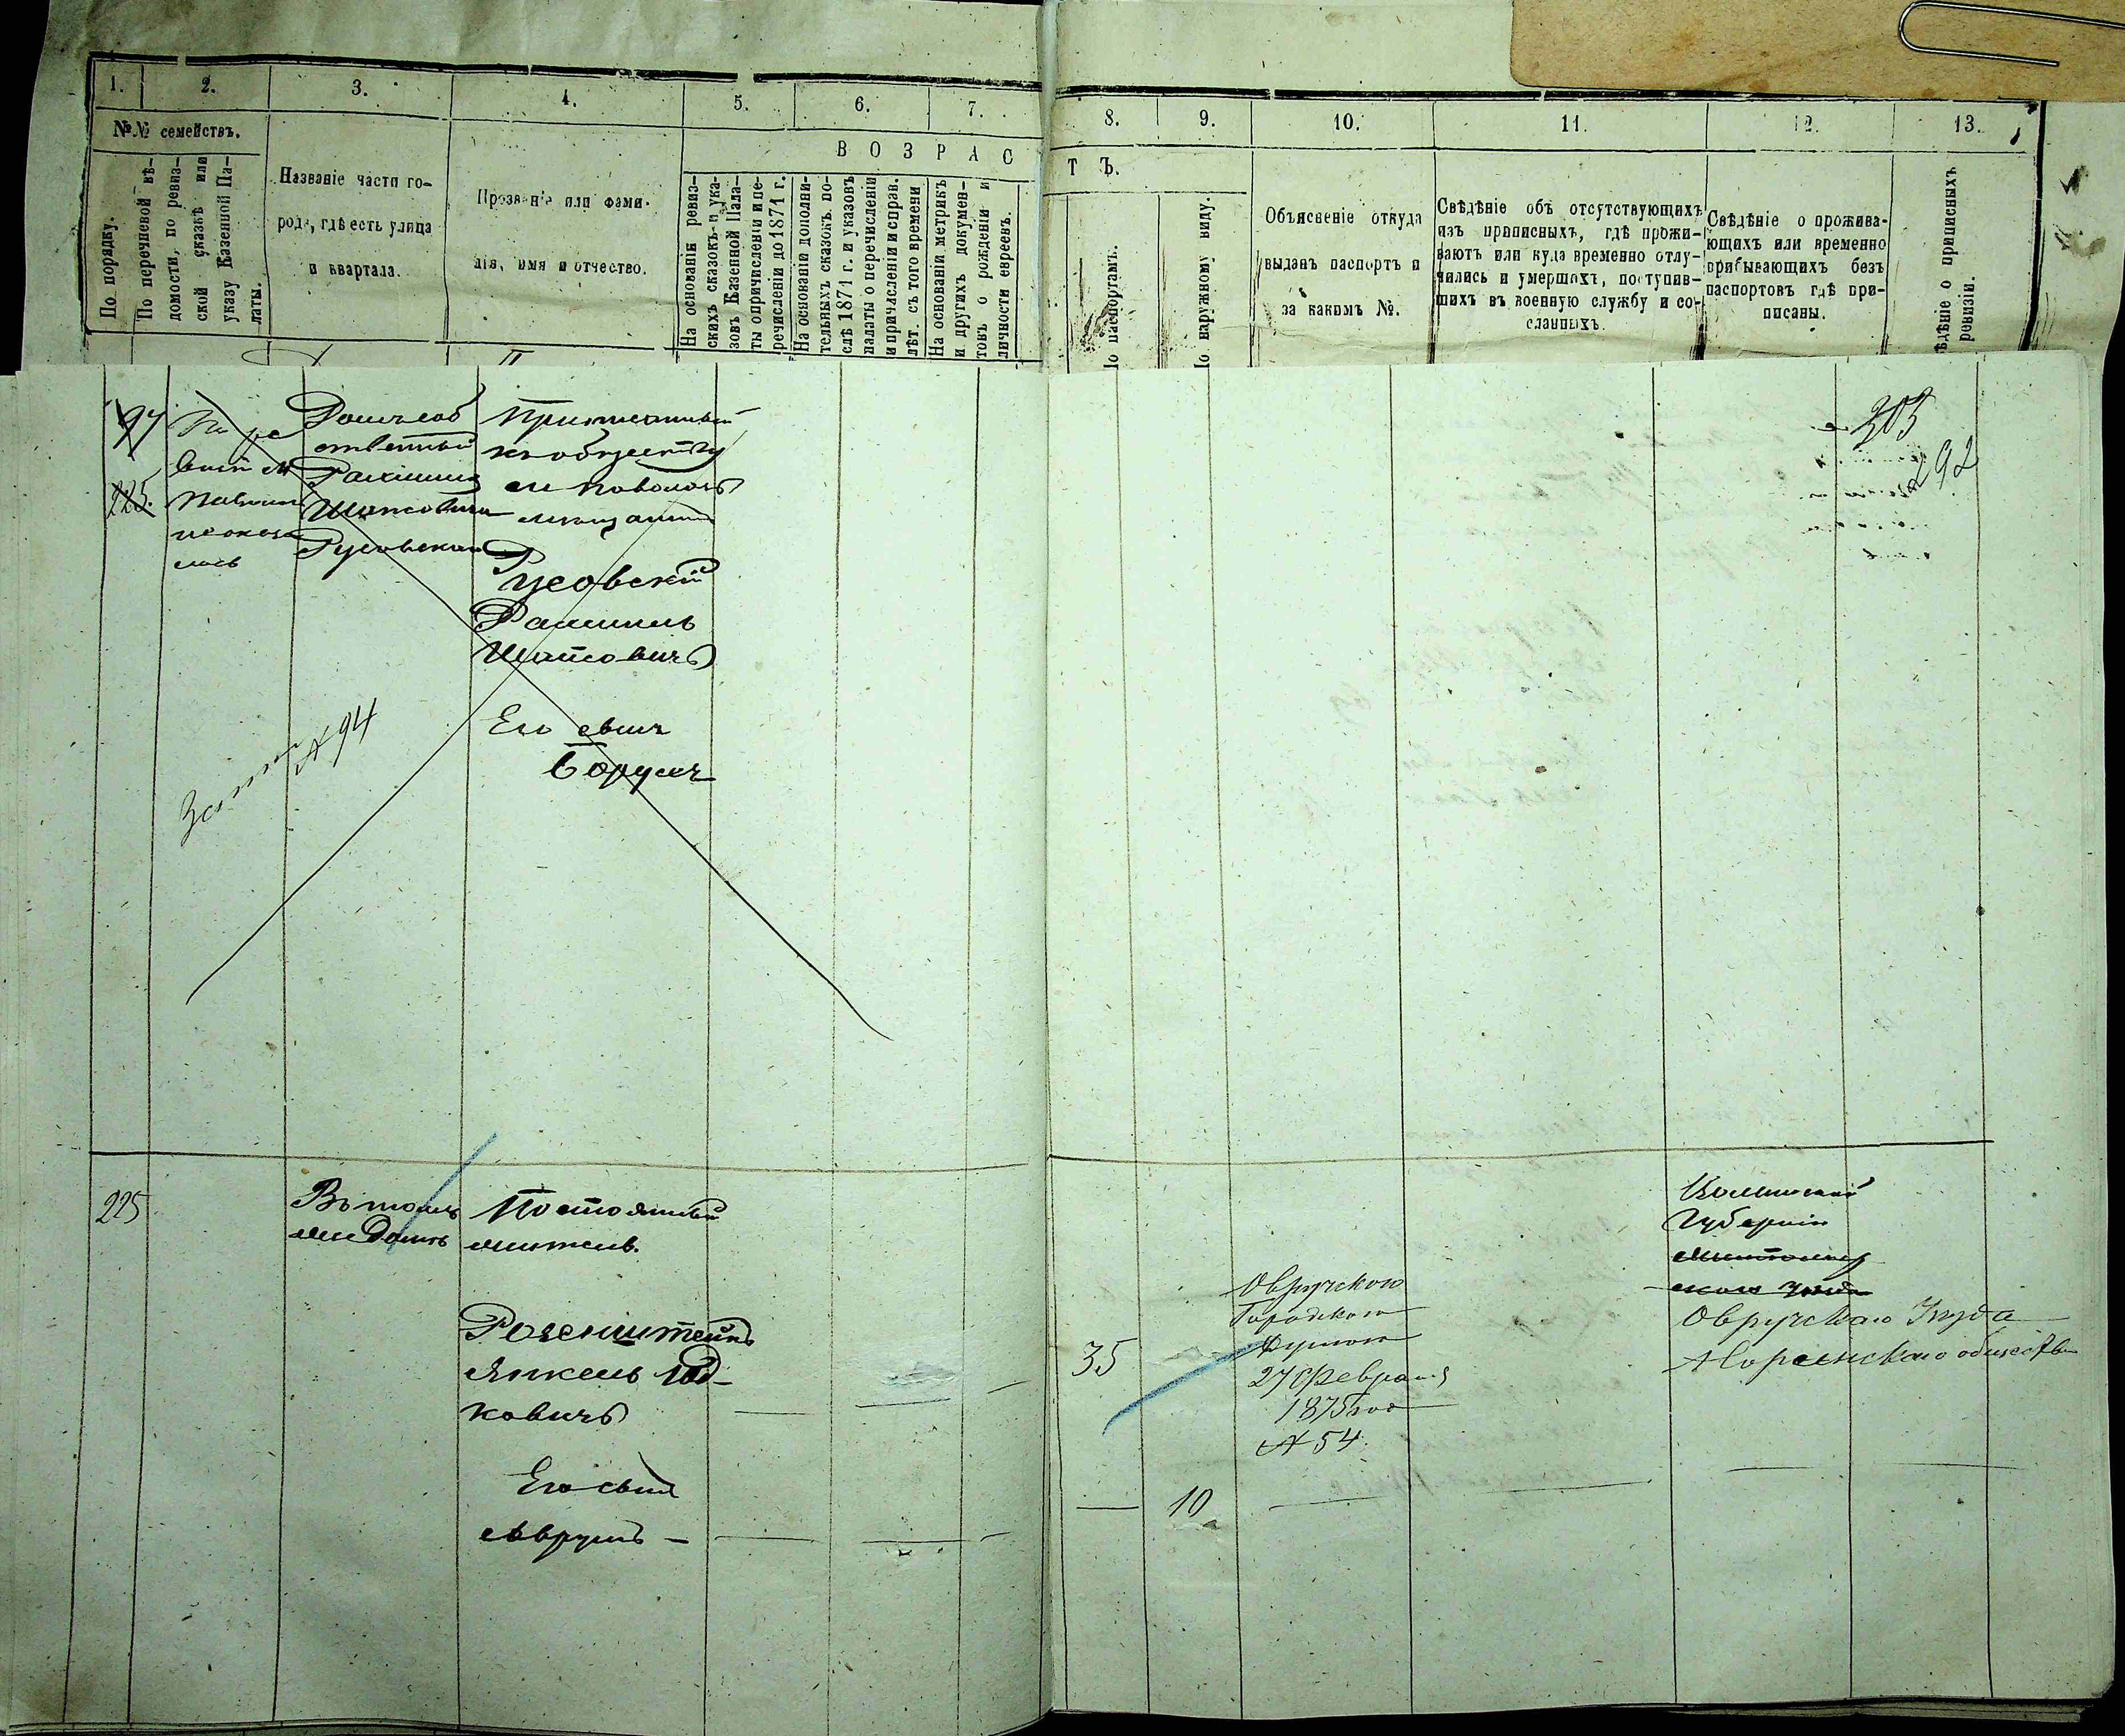 1. 2. 3. 4. 5. 6. 7. 8. 9. 10. 11. 12. 13.
№№ семействъ.
По порядку.
По перечневой вѣ-
домости, по ревиз-
ской сказкѣ или
указу Казенной Па-
латы.
Названіе части го-
рода, гдѣ есть улица
и квартала.
Прозваніе или фами-
лія, имя и отчество.
ВОЗРАС
ТЪ.
На основаніи ревиз-
скихъ сказокъ и ука-
зовъ Казенной Пала-
ты о причисленіи и пе-
речисленіи до 1871 г.
На основаніи дополни-
тельныхъ сказокъ по-
слѣ 1871 г. и указовъ
палаты о перечисленіи
и причисленіи и справ.
лѣт. съ того времени
На основаніи метрикъ
и другихъ докумен-
товъ о рожденіи и
личности евреевъ.
По паспортамъ.
По наружному виду.
Объясненіе откуда
выданъ паспортъ и
за какимъ №.
Свѣдѣніе объ отсутствующихъ
изъ приписныхъ, гдѣ прожи-
ваютъ или куда временно отлу-
чились и умершихъ, поступив-
шихъ въ военную службу и со-
сланныхъ.
Свѣдѣніе о прожива-
ющихъ или временно
прибывающихъ безъ
паспортовъ гдѣ при-
писаны.
ѣдѣніе о приписныхъ
ревизіи.
305
292
97
225.
По ре
визіи
не оказа
лось
Домъ соб
ственный
Русовскаго
къ обществу
мѣщанинъ
Русовскій
Его сынъ
Борухъ
№ 94
225
Въ томъ
же домѣ
житель.
Розенштейнъ
Янкель
ковичъ
Его сынъ
Аврумъ
35
10
Овручскою
Городскою
Думою
27 Февраля
1875 года
№ 54.
Волынской
Губерніи
скаго уѣзда
Овручскаго Уѣзда
Норинскаго общества